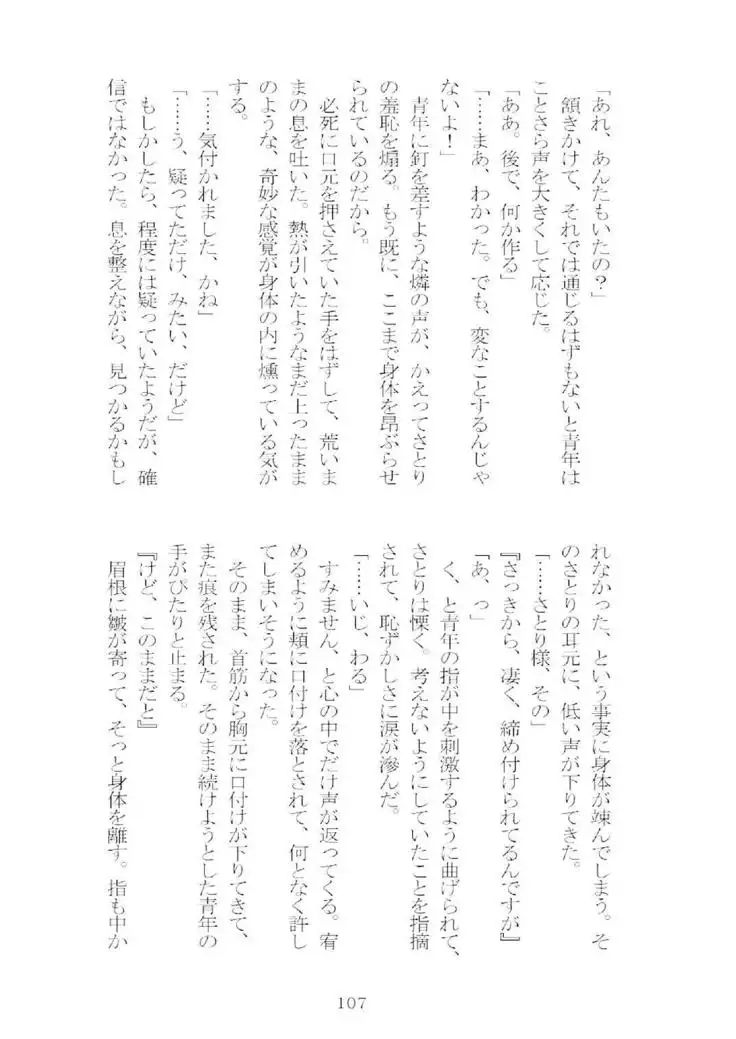 「あれ、あんたもいたの？」
　頷きかけて、それでは通じるはずもないと青年は
ことさら声を大きくして応じた。
「ああ。後で、何か作る」
「……まあ、わかった。でも、変なことするんじゃ
ないよ！」
　青年に釘を差すような燐の声が、かえってさとり
の羞恥を煽る。もう既に、ここまで身体を昂ぶらせ
られているのだから。
　必死に口元を押さえていた手をはずして、荒いま
まの息を吐いた。熱が引いたようなまだ上ったまま
のような、奇妙な感覚が身体の内に燻っている気が
する。
「……気付かれました、かね」
「……う、疑ってただけ、みたい、だけど」
　もしかしたら、程度には疑っていたようだが、確
信ではなかった。息を整えながら、見つかるかもし
れなかった、という事実に身体が竦んでしまう。そ
のさとりの耳元に、低い声が下りてきた。
「……さとり様、その」
『さっきから、凄く、締め付けられてるんですが』
「あ、っ」
　く、と青年の指が中を刺激するように曲げられて、
さとりは慄く。考えないようにしていたことを指摘
されて、恥ずかしさに涙が滲んだ。
「……いじ、わる」
　すみません、と心の中でだけ声が返ってくる。宥
めるように頬に口付けを落とされて、何となく許し
てしまいそうになった。
　そのまま、首筋から胸元に口付けが下りてきて、
また痕を残された。そのまま続けようとした青年の
手がぴたりと止まる。
『けど、このままだと』
　眉根に皺が寄って、そっと身体を離す。指も中か
107